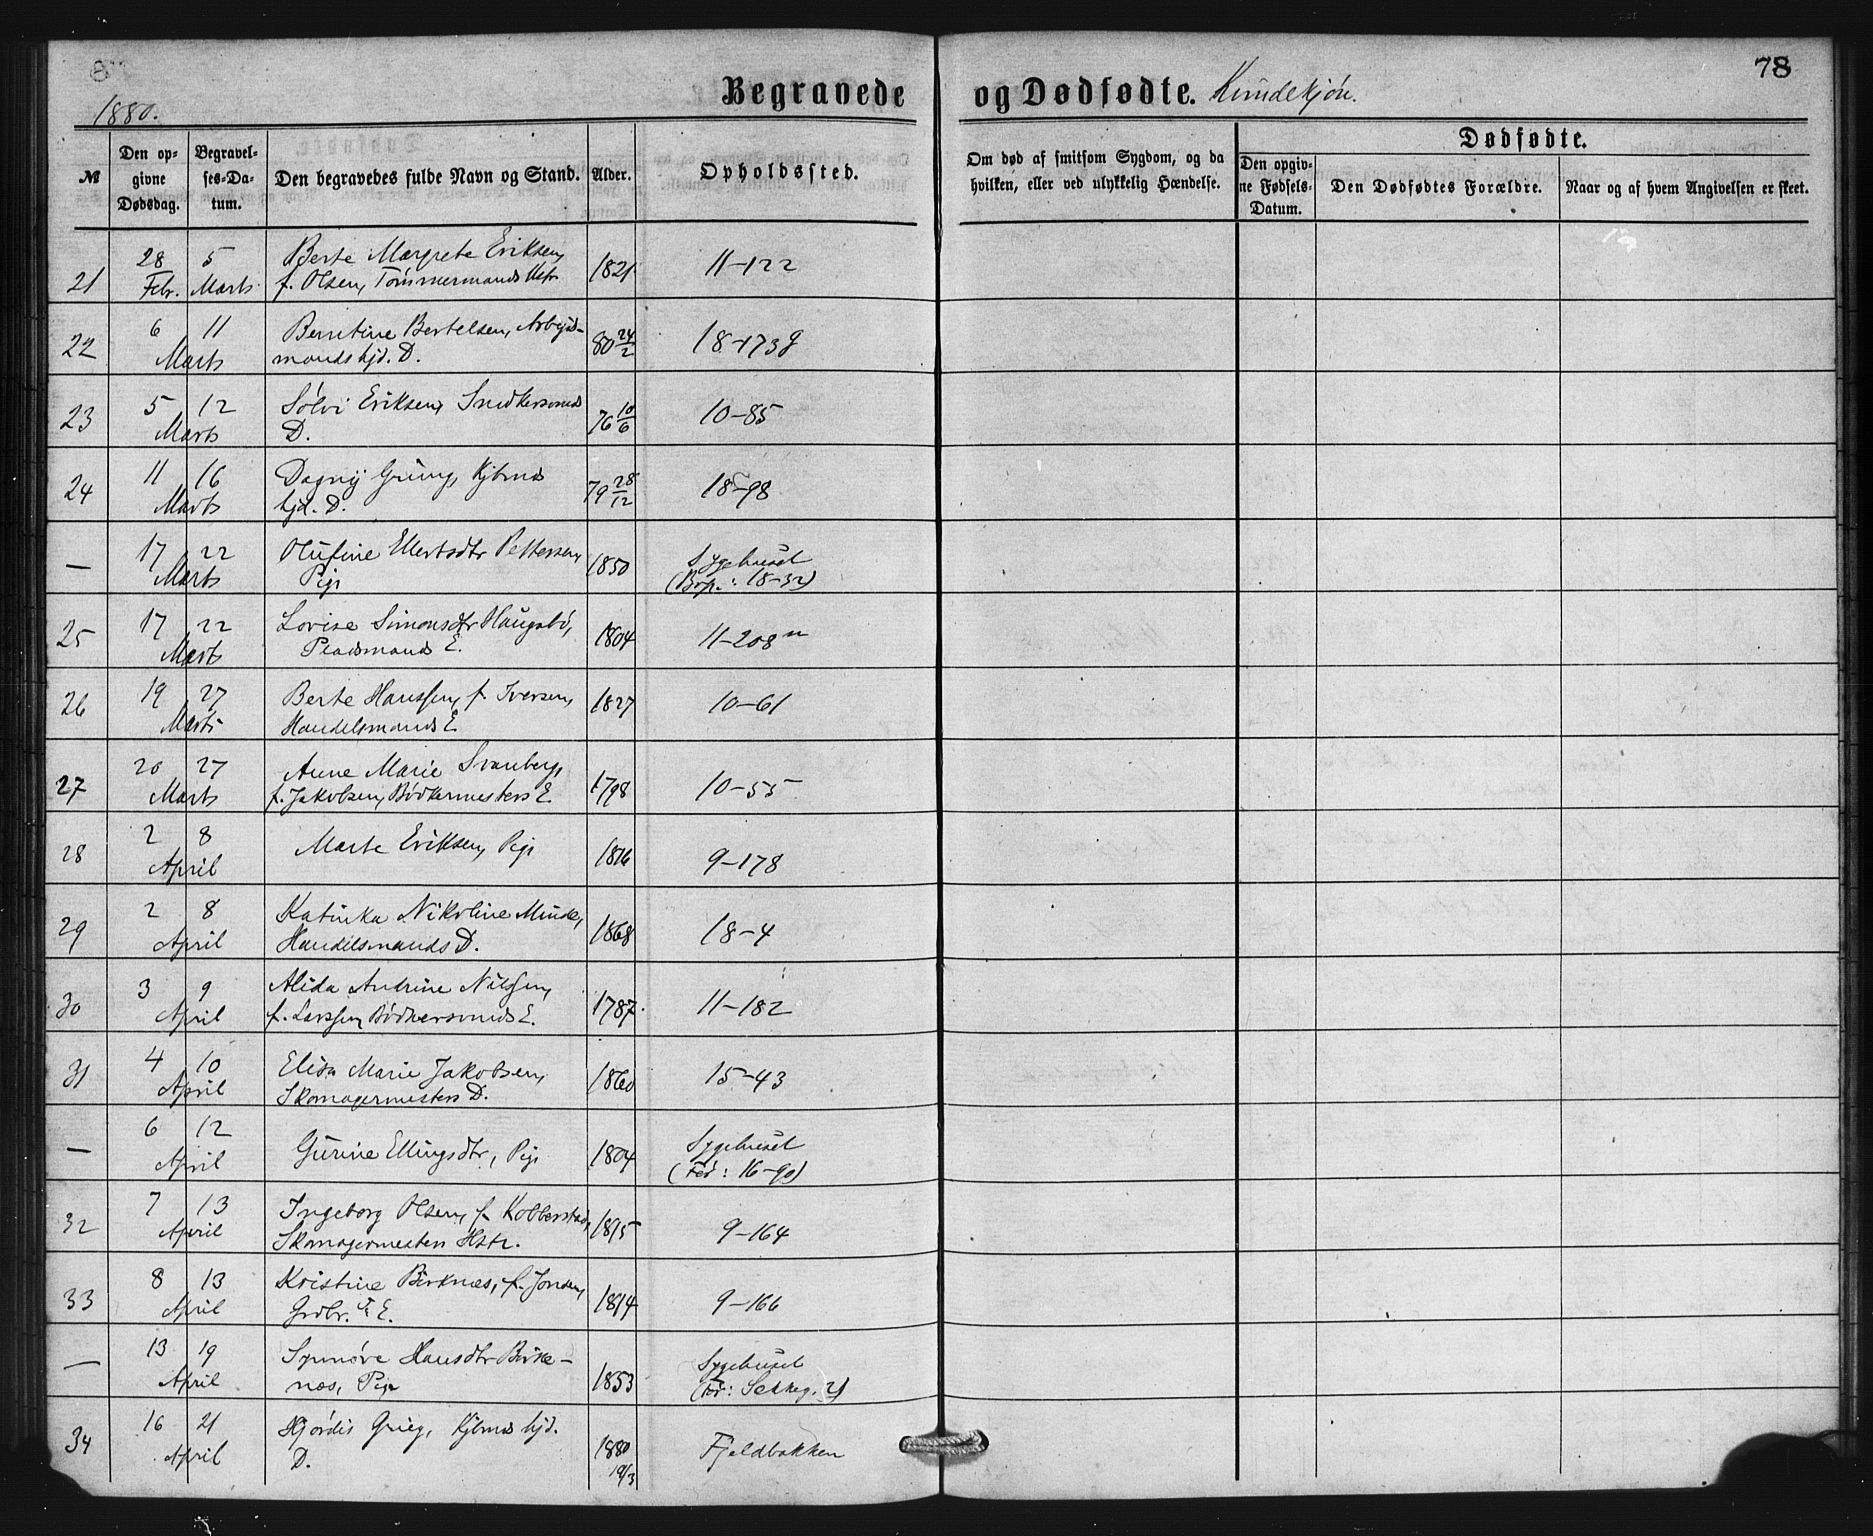 1880.
Begravede og Dødfødte. Kvindekjøn.
78
№ | Den opgivne Dødsdag. | Begravelses-Datum. | Den begravedes fulde Navn og Stand. | Alder. | Opholdssted. | Om død af smitsom Sygdom, og da hvilken, eller ved ulykkelig Hændelse. | Dødfødte. | Den opgivne Fødsels-Datum. | Den Dødfødtes Forældre. | Naar og af hvem Angivelsen er skeet.
28 5 Berte Margrete Eriksen,
21 Febr. Marts f. Olsen, Tømmermands Hstr 1821 11-122
6 11 Berntine Bertelsen, Arbejds-
22 Marts mands hjd. D. 80 24/2 18-173g
5 12 Sølvi Eriksen, Snedkersvends
23 Marts D. 76 10/6 10-85
11 16 Dagny Grung, Kjbmds
24 Marts hjd. D. 79 28/12 18-98
17 22 Olufine Ellertsdtr Pettersen, Sygehuset
— Marts Pige 1850 (Bop.: 18-32)
17 22 Lovise Simonsdtr Haugsbø,
25 Marts Pladsmands E. 1804 11-208
19 27 Berte Hanssen, f. Iversen,
26 Marts Handelsmands E 1827 10-61
20 27 Anne Marie Svanberg,
27 Marts f. Jakobsen, Bødkermesters E. 1798 10-55
2 8 Marte Eriksen, Pige
28 April 1816 9-178
2 8 Katinka Nikoline Minde,
29 April Handelsmands D. 1868 18-4
3 9 Alida Andrine Nilssen,
30 April f. Larssen, Bødkersvends E. 1787 11-182
4 10 Elisa Marie Jakobsen,
31 April Skomagermesters D. 1860 15-43
6 12 Gurine Ellingsdtr, Pige Sygehuset
— April 1804 (Fed: 16-90)
7 13 Ingeborg Olsen, f. Kobberstad,
32 April Skomagermesters Hstr. 1815 9-164
8 13 Kristine Birknes, f. Jonsen,
33 April Grdbr. E. 1814 9-166
13 19 Synnøve Hansdtr Birke- Sygehuset
— April næs, Pige 1853
16 21 Hjørdis Grieg, Kjbmds hjd.
34 April D. 1880 19/3 Fjeldbakken